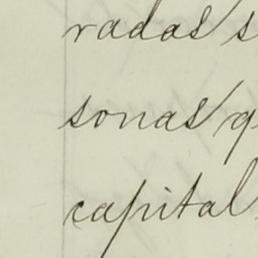 radas s
sonas q
capital